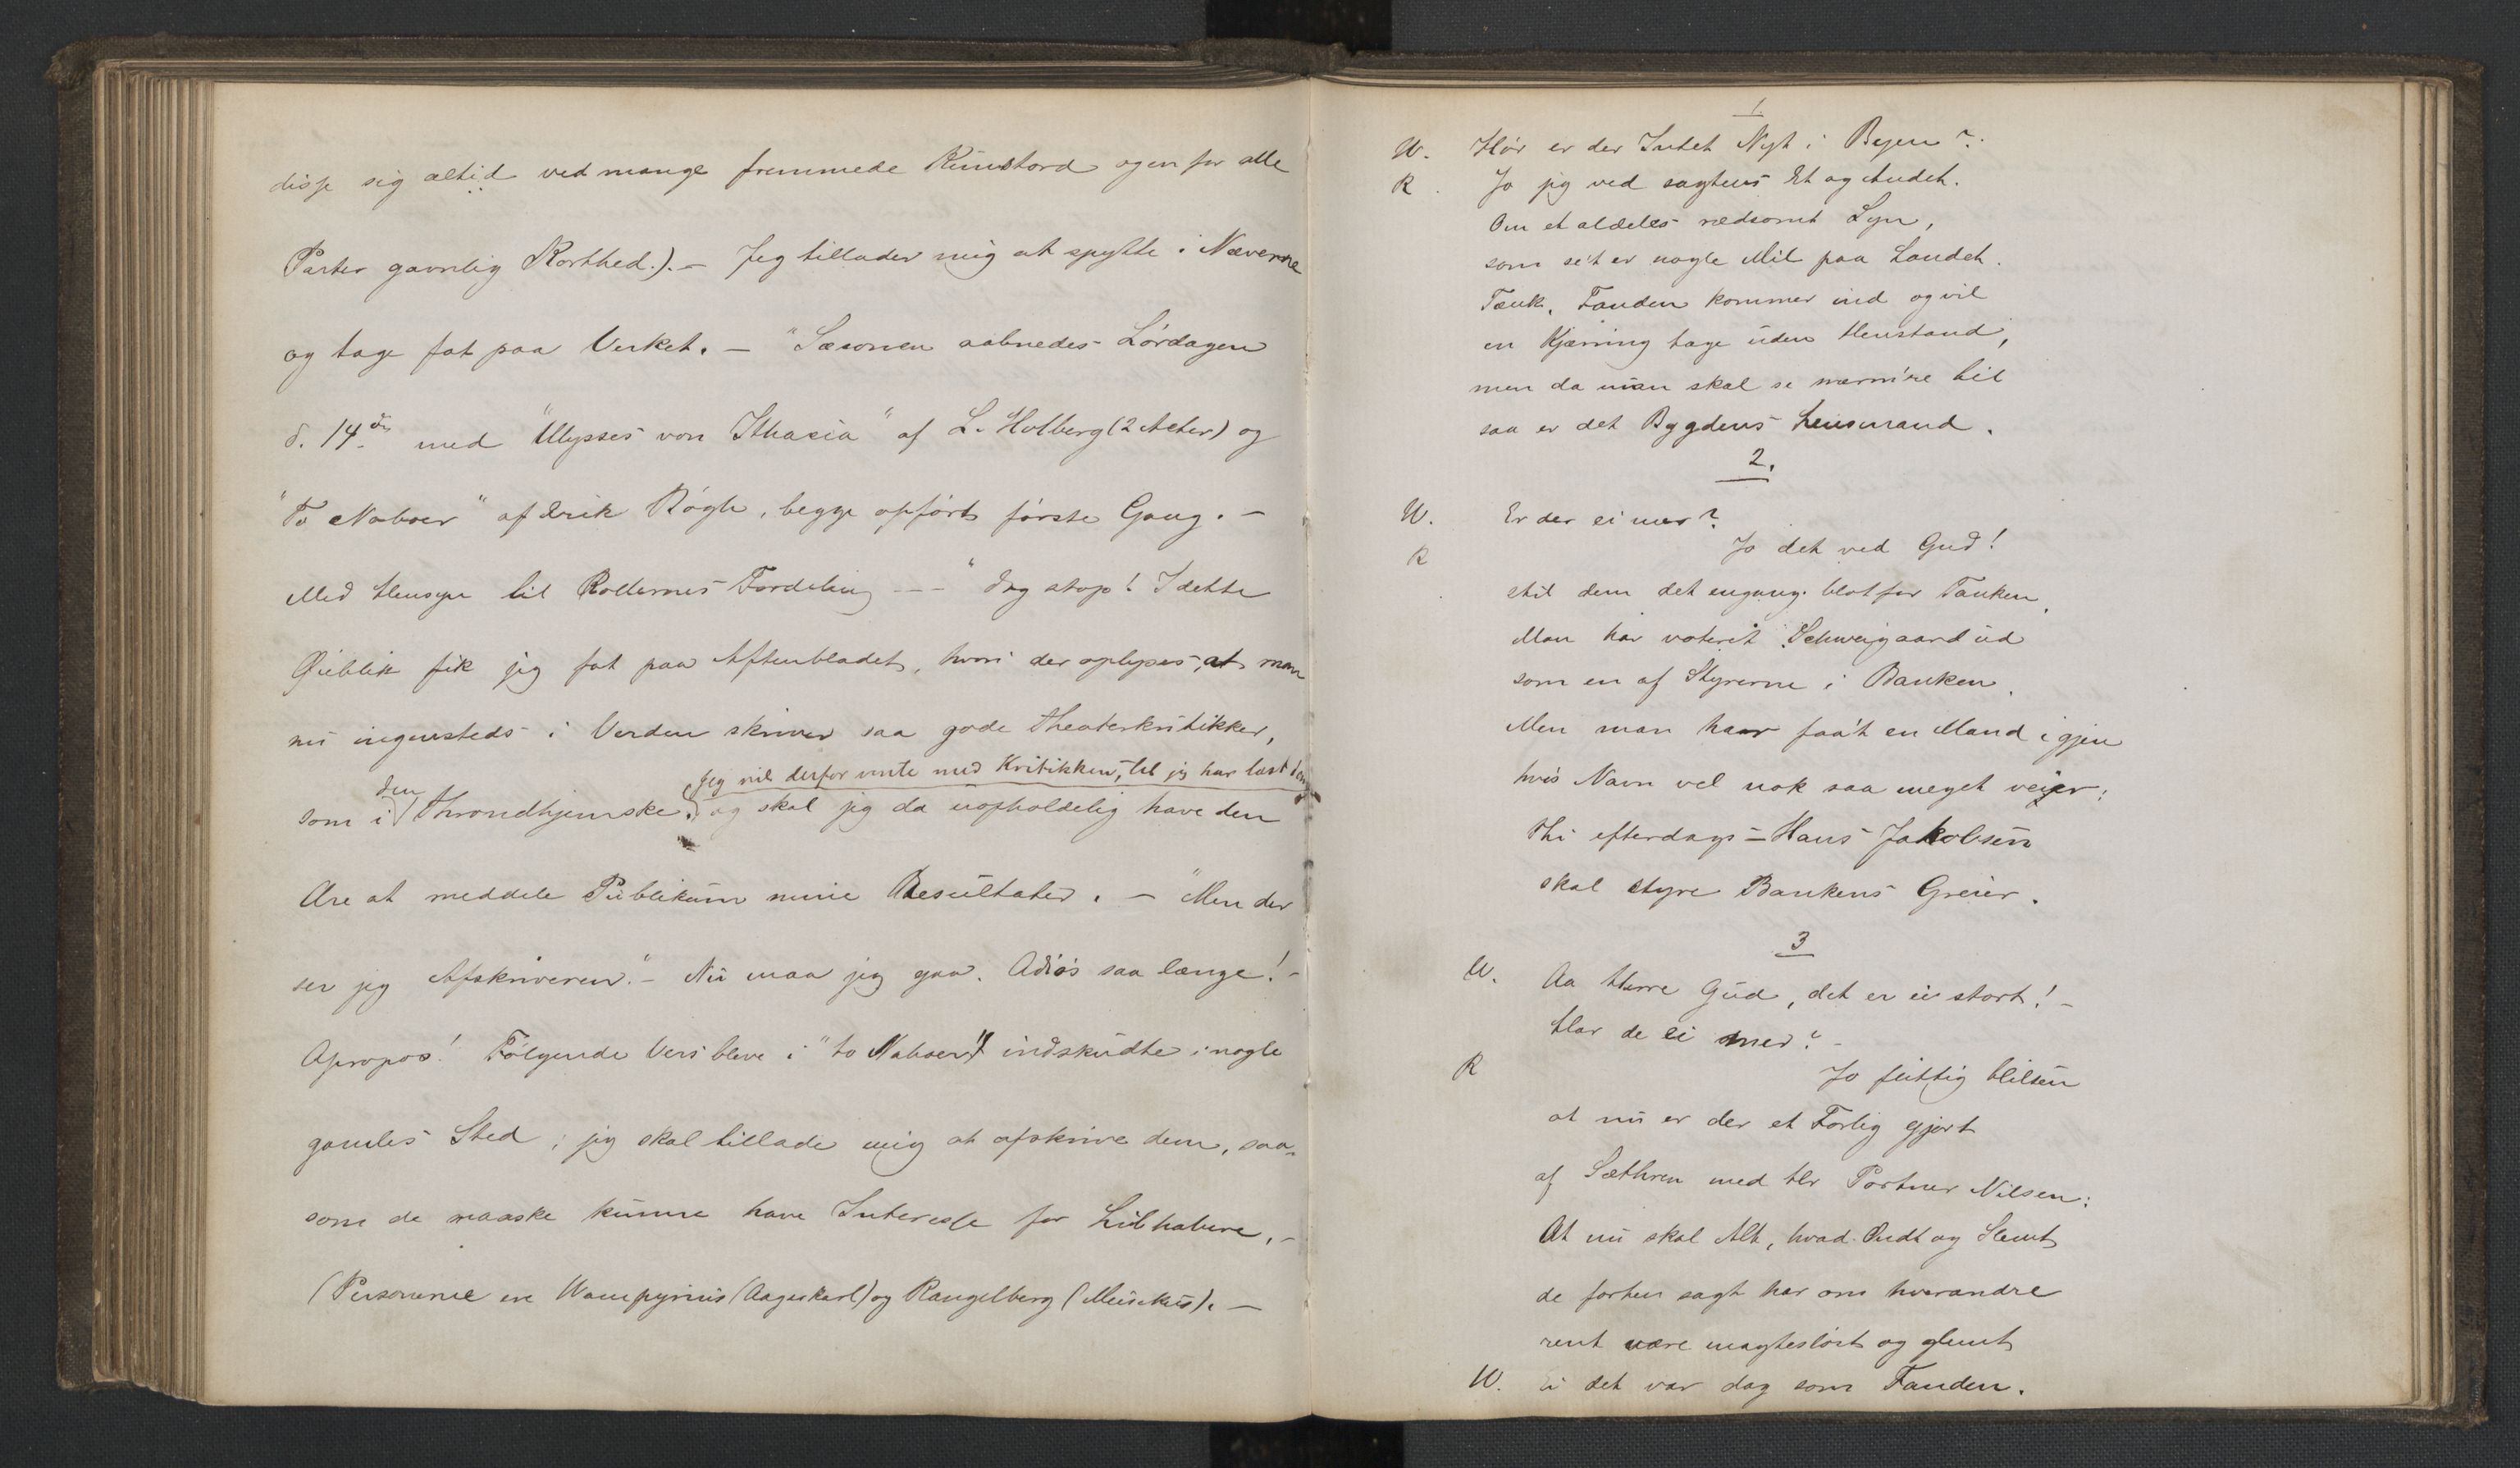 disse sig altid ved mange fremmede Kunstord og en for alle
Parter gavnlig Korthed.). — Jeg tillader mig at spytte i Næverne
og tage fat paa Verket. — "Sæsonen aabnedes Lørdagen
d. 14de med "Ulysses von Ithacia" af L. Holberg (2 Akter) og
"To Naboer" af Erik Bøgh, begge opført første Gang. —
Med Hensyn til Rollernes Fordeling — — " Dog stop! I dette
Øieblik fik jeg fat paa Aftenbladet, hvori der oplyses, at man
nu ingensteds i Verden skriver saa gode Theaterkritikker,
Jeg vil derfor vente med Kritikken, til jeg har læst den
som i den Throndhjemske. og skal jeg da uopholdelig have den
Ære at meddele Publikum mine Resultater. — "Men der
ser jeg Afskriveren." — Nu maa jeg gaa. Adiøs saa længe! —
Apropos! Følgende Vers bleve i "to Naboer" indskudte i nogle
gamles Sted; jeg skal tillade mig at afskrive dem, saa-
som de maaske kunne have Interesse for Liebhabere. —
(Personerne ere Wampyrius (Aageskarl) og Rangelberg (Musikus). —
1.
W. Hør er der Intet Nyt i Byen?
R. Jo jeg ved sagtens Et og Andet.
Om et aldeles rædsomt Syn,
som se't er nogle Mil paa Landet.
Tænk, Fanden kommer ind og vil
en Kjærring tage uden Henstand,
men da man skal se nærm're til
saa er det Bygdens Lensmand.
2.
W. Er der ei mer?
R Jo det ved Gud!
stil dem det engang blot for Tanken,
Man har voteret Schweigaard ud
som en af Styrerne i Banken,
Men man haar faa't en Mand igjen
hvis Navn vel nok saa meget veier;
thi efterdags — Hans Jakobsen
skal styre Bankens Greier.
3
W. Aa Herre Gud, det er ei stort! —
Har de ei mer? —
R Jo flittig Hilsen
at nu er der et Forlig gjort
af Sæthren med Hr Portner Nilsen:
At nu skal Alt, hvad Ondt og Slemt
de forhen sagt har om hverandre
rent være magtesløst og glemt
W. Ei det var dog som Fanden.